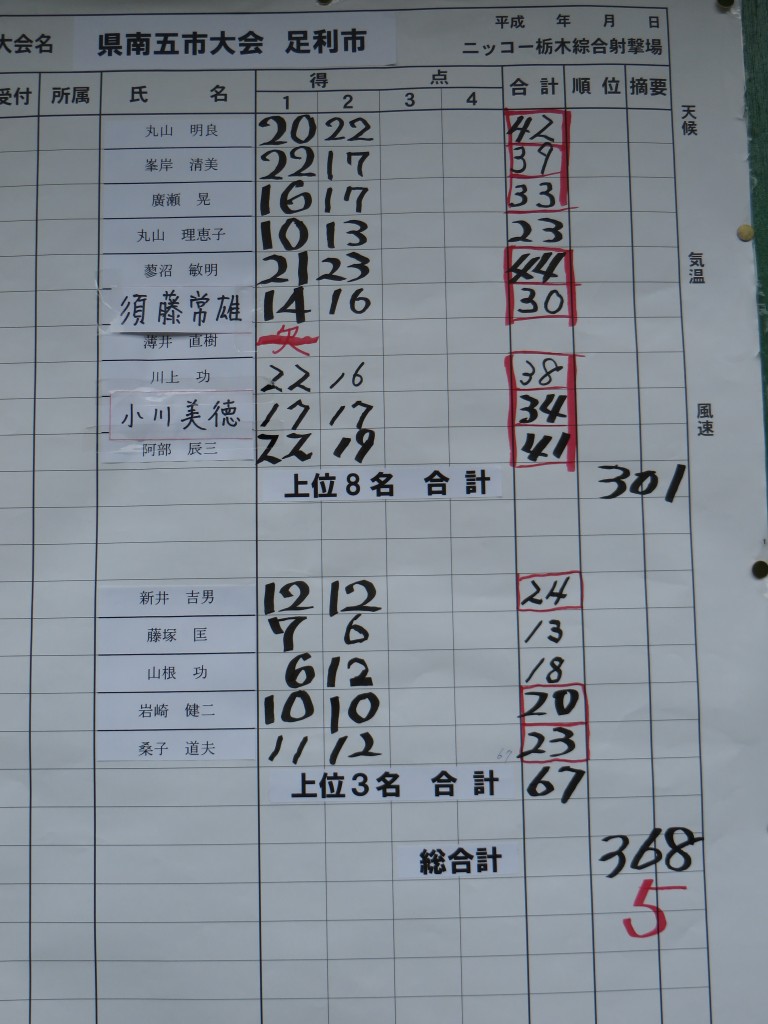 平成 年 月 日
大会名 県南五市大会 足利市 ニッコー栃木綜合射撃場
受付 所属 氏 名 得 点 合計 順位 摘要
1 2 3 4
天候
丸山 明良 20 22 42
峯岸 清美 22 17 39
廣瀬 晃 16 17 33
丸山 理恵子 10 13 23
蓼沼 敏明 21 23 44
気温
須藤常雄 14 16 30
薄井 直樹 欠
川上 功 22 16 38
小川美徳 17 17 34
風速
阿部 辰三 22 19 41
上位8名 合計 301
新井 吉男 12 12 24
藤塚 匡 7 6 13
山根 功 6 12 18
岩崎 健二 10 10 20
桑子 道夫 11 12 67 23
上位3名 合計 67
総合計 368
5